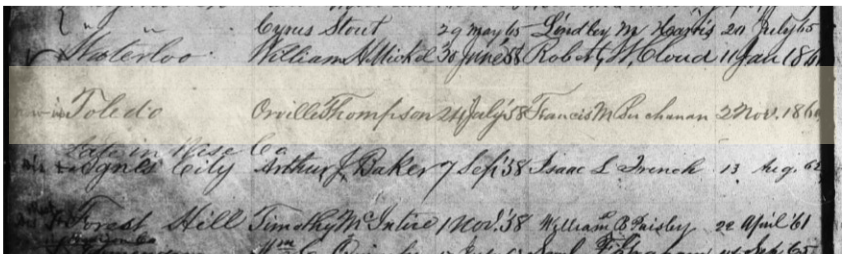 Cyrus Stout 29 May 65 Lindley M Harris 20 July 65
Waterloo William H. Mickel 30 June 58 Robert W. Cloud 11 Jan 186
Toledo Orville Thompson 24 July 58 Francis M Buchanan 2 Nov. 186
Late in Wise Co
Agnes City Arthur J. Baker 7 Sep. 58 Isaac L French 13 Aug. 62
Forest Hill Timothy McIntire 1 Nov. 58 William P Paisley 22 April 61